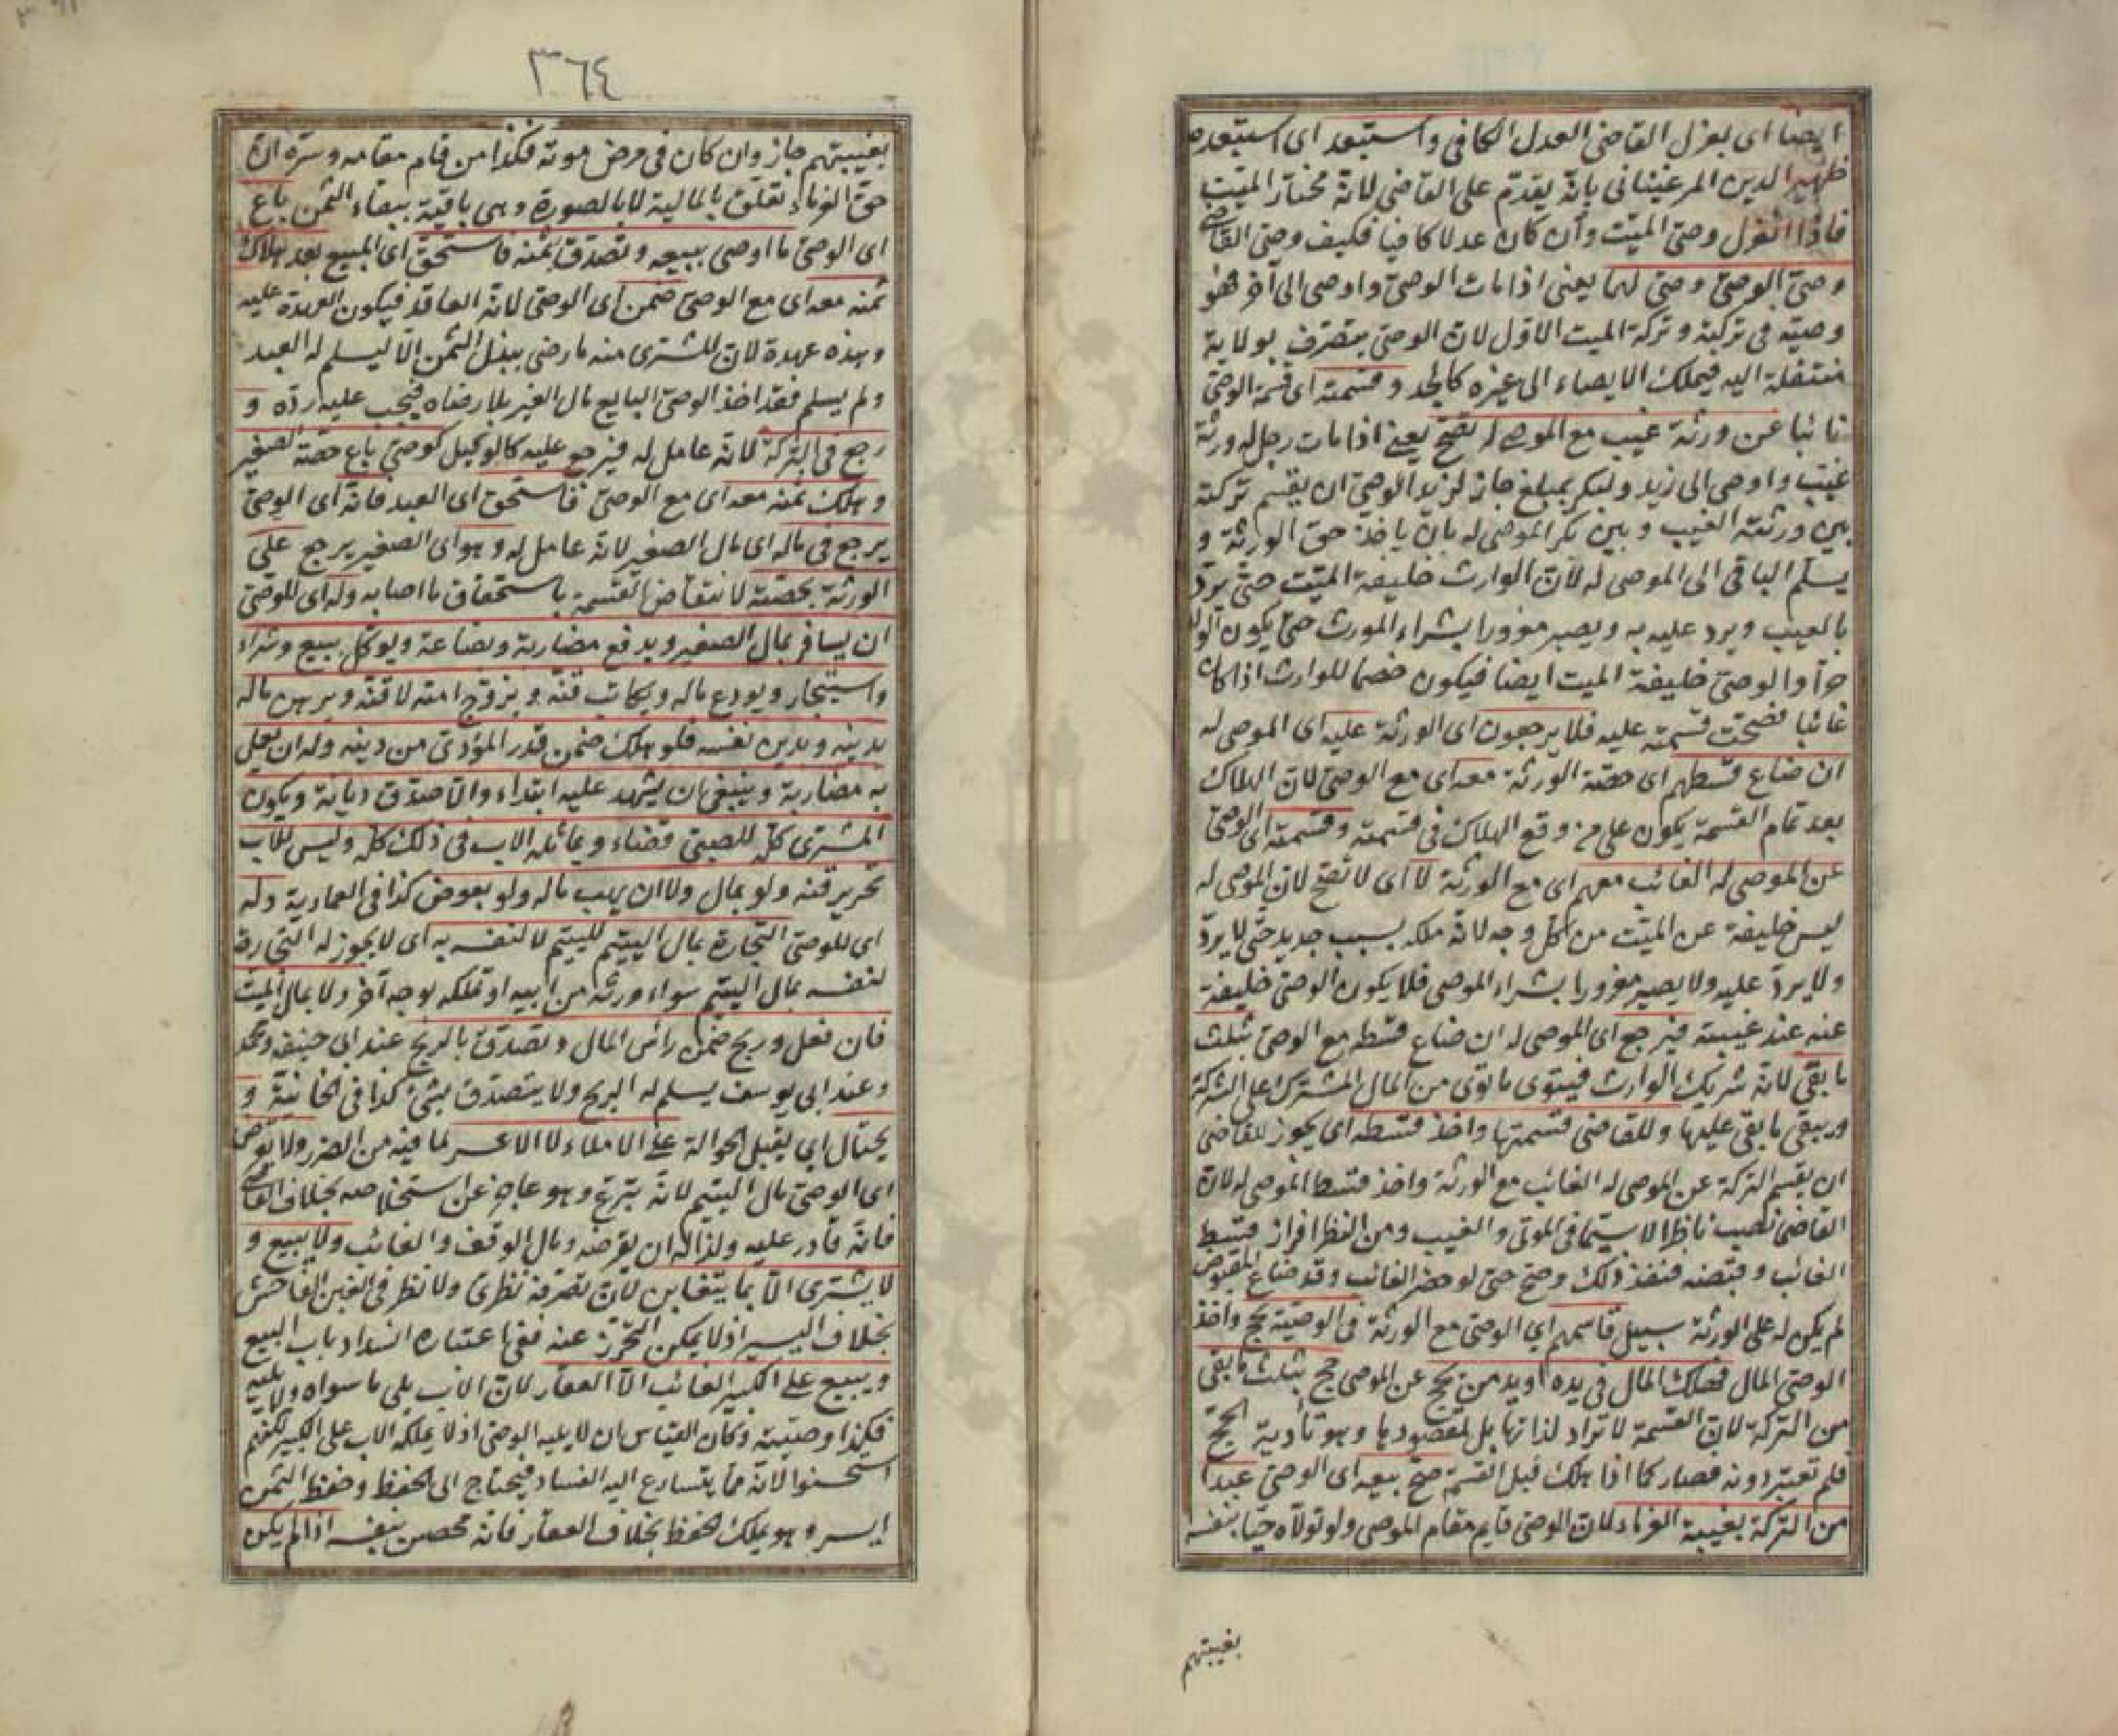 ايضا اى بعزل القاضى العدل الكافى واستبعد اى استبعده
ظهير الدين المرغينانى بانه يقدم على القاضى لانه مختار الميت
فاذا انعزل وصى الميت وان كان عدلا كافيا فكيف وصى القاضى
وصى الوصى وصى لهما يعنى اذا مات الوصى واوصى الى آخر فهو
وصيه فى تركته وتركة الميت الاول لان الوصى يتصرف بولاية
منتقلة اليه فيملك الايصاء الى غيره كالجد وقسمته اى قسمة الوصى
نائبا عن ورثة غيب مع الموصى له تصح يعنى اذا مات رجل له ورثة
غيب واوصى الى زيد ولبكر بمبلغ جاز لزيد الوصى ان يقسم تركته
بين ورثته الغيب وبين بكر الموصى له بان ياخذ حق الورثة و
يسلم الباقى الى الموصى له لان الوارث خليفة الميت حتى يرد
بالعيب ويرد عليه به ويصير مغرورا بشراء المورث حتى يكون الولد
حرا والوصى خليفة الميت ايضا فيكون خصما للوارث اذا كان
غائبا فصحت قسمته عليه فلا يرجعون اى الورثة عليه اى الموصى له
ان ضاع قسطهم اى حصة الورثة معه اى مع الوصى لان الهلاك
بعد تمام القسمة يكون على من وقع الهلاك فى قسمته وقسمته اى الوصى
عن الموصى له الغائب معهم اى مع الورثة لا اى لا تصح لان الموصى له
ليس خليفة عن الميت من كل وجه لانه ملكه بسبب جديد حتى لا يرد
ولا يرد عليه ولا يصير مغرورا بشراء الموصى فلا يكون الوصى خليفة
عنه عند غيبته فيرجع اى الموصى له ان ضاع قسطه مع الوصى بثلث
ما بقى لانه شريك الوارث فيتوى ما توى من المال المشترك على الشركة
ويبقى ما بقى عليها وللقاضى قسمتها واخذ قسطه اى يجوز للقاضى
ان يقسم التركة عن الموصى له الغائب مع الورثة واخذ قسط الموصى له لان
القاضى نصب ناظرا لا سيما فى الموتى والغيب ومن النظر افراز قسط
الغائب وقبضه فنفذ ذلك وصح حتى لو حضر الغائب وقد ضاع المقبوض
لم يكن له على الورثة سبيل قاسمهم اى الوصى مع الورثة فى الوصية بحج واخذ
الوصى المال فهلك المال فى يده او يد من يحج عن الموصى حج بثلث ما بقى
من التركة لان القسمة لا تراد لذاتها بل لمقصودها وهو تأدية الحج
فلم تعتبر دونه فصار كما اذا هلك قبل القسمة صح بيعه اى الوصى عبدا
من التركة بغيبة الغرماء لان الوصى قايم مقام الموصى ولو تولاه حيا بنفسه
بغيبتهم
٣٦٤
بغيبتهم جاز وان كان فى مرض موته فكذا من قام مقامه وسره ان
حق الغرماء تعلق بالمالية لا بالصورة وهى باقية ببقاء الثمن باع
اى الوصى ما اوصى ببيعه وتصدق بثمنه فاستحق اى المبيع بعد هلاك
ثمنه معه اى مع الوصى ضمن اى الوصى لانه العاقد فيكون العهدة عليه
وهذه عهدة لان المشترى منه ما رضى ببذل الثمن الا ليسلم له العبد
ولم يسلم فقد اخذ الوصى البايع مال الغير بلا رضاه فيجب عليه رده و
رجع فى التركة لانه عامل له فيرجع عليه كالوكيل كوصى باع حصة الصغير
وهلك ثمنه معه اى مع الوصى فاستحق اى العبد فانه اى الوصى
يرجع فى ماله اى مال الصغير لانه عامل له وهو اى الصغير يرجع على
الورثة بحصته لانتقاض القسمة باستحقاق ما اصابه وله اى للوصى
ان يسافر بمال الصغير ويدفع مضاربة وبضاعة ويوكل ببيع وشراء
واستيجار ويودع ماله ويكاتب قنه ويزوج امته لا قنه ويرهن ماله
بدينه وبدين نفسه فلو هلك ضمن قدر المؤدى من دينه وله ان يعمل
به مضاربة وينبغى ان يشهد عليه ابتداء والا صدق ديانة ويكون
المشترى كله للصبى قضاء ويماثله الاب فى ذلك كله وليس للاب
تحرير قنه ولو بمال ولا ان يهب ماله ولو بعوض كذا فى العمادية وله
اى للوصى التجارة بمال اليتيم لليتيم لا لنفسه به اى لا يجوز له التجارة
لنفسه بمال اليتيم سواء ورثه من ابيه او تملكه بوجه آخر ولا بمال الميت
فان فعل وربح ضمن رأس المال وتصدق بالربح عند ابى حنيفة ومحمد
وعند ابى يوسف يسلم له الربح ولا يتصدق بشئ كذا فى الخانية و
يحتال اى يقبل الحوالة على الاملاء لا الاعسر لما فيه من الضرر ولا يقرض
اى الوصى مال اليتيم لانه تبرع وهو عاجز عن استخلاصه بخلاف القاضى
فانه قادر عليه ولذا له ان يقرضه ومال الوقف والغائب ولا يبيع و
لا يشترى الا بما يتغابن لان تصرفه نظرى ولا نظر فى الغبن الفاحش
بخلاف اليسير اذ لا يمكن التحرز عنه ففى اعتباره انسداد باب البيع
ويبيع على الكبير الغائب الا العقار لان الاب يلى ما سواه ولا يليه
فكذا وصيه وكان القياس ان لا يليه الوصى اذ لا يملكه الاب على الكبير لكنهم
استحسنوا لانه مما يتسارع اليه الفساد فيحتاج الى الحفظ وحفظ الثمن
ايسر وهو يملك الحفظ بخلاف العقار فانه محصن بنفسه اذا لم يكن